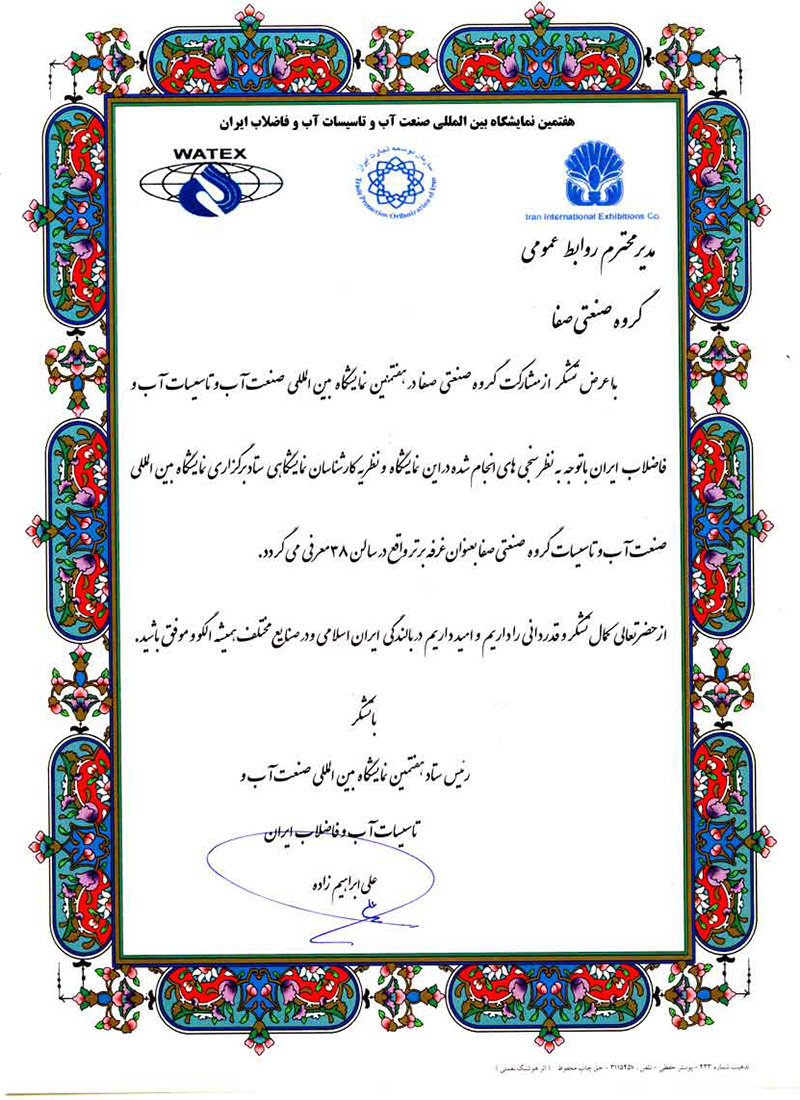 هفتمین نمایشگاه بین المللی صنعت آب و تاسیسات آب و فاضلاب ایران
WATEX
سازمان توسعه تجارت ایران
Trade Promotion Orthonization of Iran
Iran International Exhibitions Co.
مدیر محترم روابط عمومی
گروه صنعتی صفا
با عرض تشکر از مشارکت گروه صنعتی صفا در هفتمین نمایشگاه بین المللی صنعت آب و تاسیسات آب و
فاضلاب ایران باتوجه به نظرسنجی های انجام شده در این نمایشگاه و نظریه کارشناسان نمایشگاهی ستاد برگزاری نمایشگاه بین المللی
صنعت آب و تاسیسات گروه صنعتی صفا بعنوان غرفه برتر واقع در سالن ۳۸ معرفی می گردد.
از حضرتعالی کمال تشکر و قدردانی را داریم و امید داریم در بالندگی ایران اسلامی و در صنایع مختلف همیشه الگو و موفق باشید.
باتشکر
رئیس ستاد هفتمین نمایشگاه بین المللی صنعت آب و
تاسیسات آب و فاضلاب ایران
علی ابراهیم زاده
تذهیب شماره ۴۳۳ - پوستر حفظی - تلفن: ۳۱۱۵۴۵۷ - حق چاپ محفوظ ( اثر هوشنگ نعمتی )